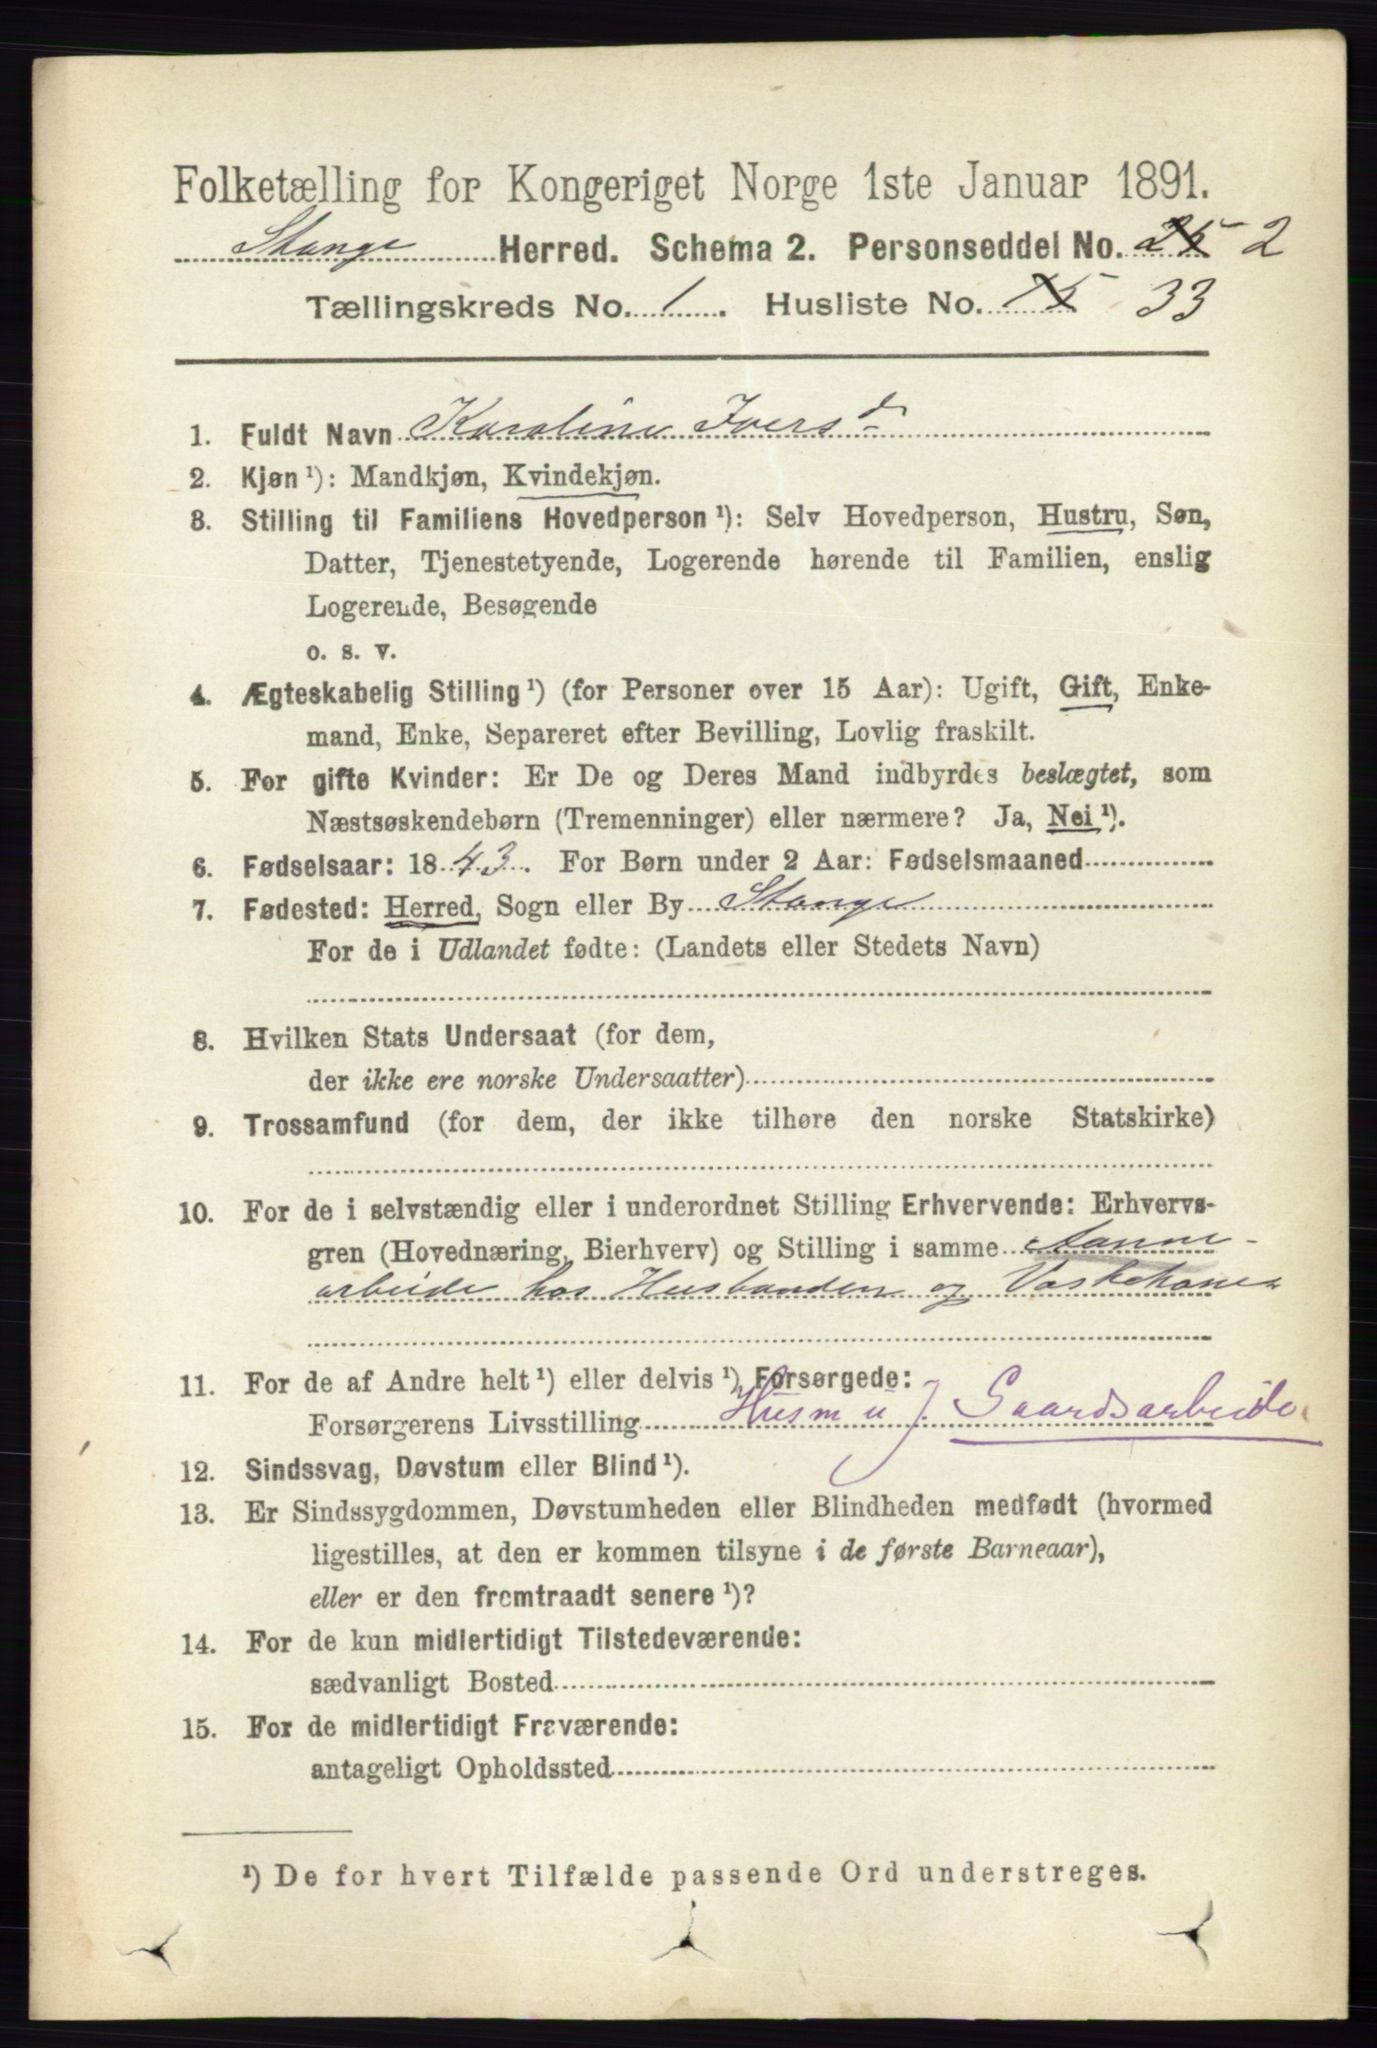 Folketælling for Kongeriget Norge 1ste Januar 1891.
Stange Herred. Schema 2. Personseddel No. 25 2
Tællingskreds No. 1. Husliste No. 15 33
1. Fuldt Navn Karoline Ivers d
2. Kjøn ¹): Mandkjøn, Kvindekjøn.
3. Stilling til Familiens Hovedperson ¹): Selv Hovedperson, Hustru, Søn,
Datter, Tjenestetyende, Logerende hørende til Familien, enslig
Logerende, Besøgende
o. s. v.
4. Ægteskabelig Stilling ¹) (for Personer over 15 Aar): Ugift, Gift, Enke-
mand, Enke, Separeret efter Bevilling, Lovlig fraskilt.
5. For gifte Kvinder: Er De og Deres Mand indbyrdes beslægtet, som
Næstsøskendebørn (Tremenninger) eller nærmere? Ja, Nei ¹).
6. Fødselsaar: 1843. For Børn under 2 Aar: Fødselsmaaned
7. Fødested: Herred, Sogn eller By Stange
For de i Udlandet fødte: (Landets eller Stedets Navn)
8. Hvilken Stats Undersaat (for dem,
der ikke ere norske Undersaatter)
9. Trossamfund (for dem, der ikke tilhøre den norske Statskirke)
10. For de i selvstændig eller i underordnet Stilling Erhvervende: Erhvervs-
gren (Hovednæring, Bierhverv) og Stilling i samme
arbeide hos Husbonden og Vaskekone
11. For de af Andre helt ¹) eller delvis ¹) Forsørgede:
Forsørgerens Livsstilling Husm u J. Gaardsarbeide
12. Sindssvag, Døvstum eller Blind ¹).
13. Er Sindssygdommen, Døvstumheden eller Blindheden medfødt (hvormed
ligestilles, at den er kommen tilsyne i de første Barneaar),
eller er den fremtraadt senere ¹)?
14. For de kun midlertidigt Tilstedeværende:
sædvanligt Bosted
15. For de midlertidigt Fraværende:
antageligt Opholdssted
¹) De for hvert Tilfælde passende Ord understreges.